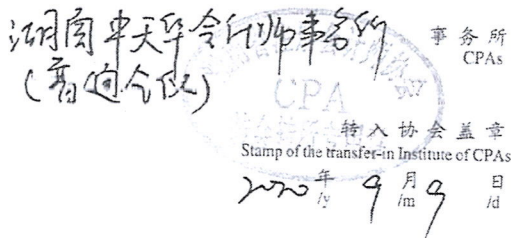 湖南中天华会计师事务所 事务所
CPAs
(普通合伙)
CPA
转入协会盖章
Stamp of the transfer-in Institute of CPAs
2020年 9月 9日
/y /m /d